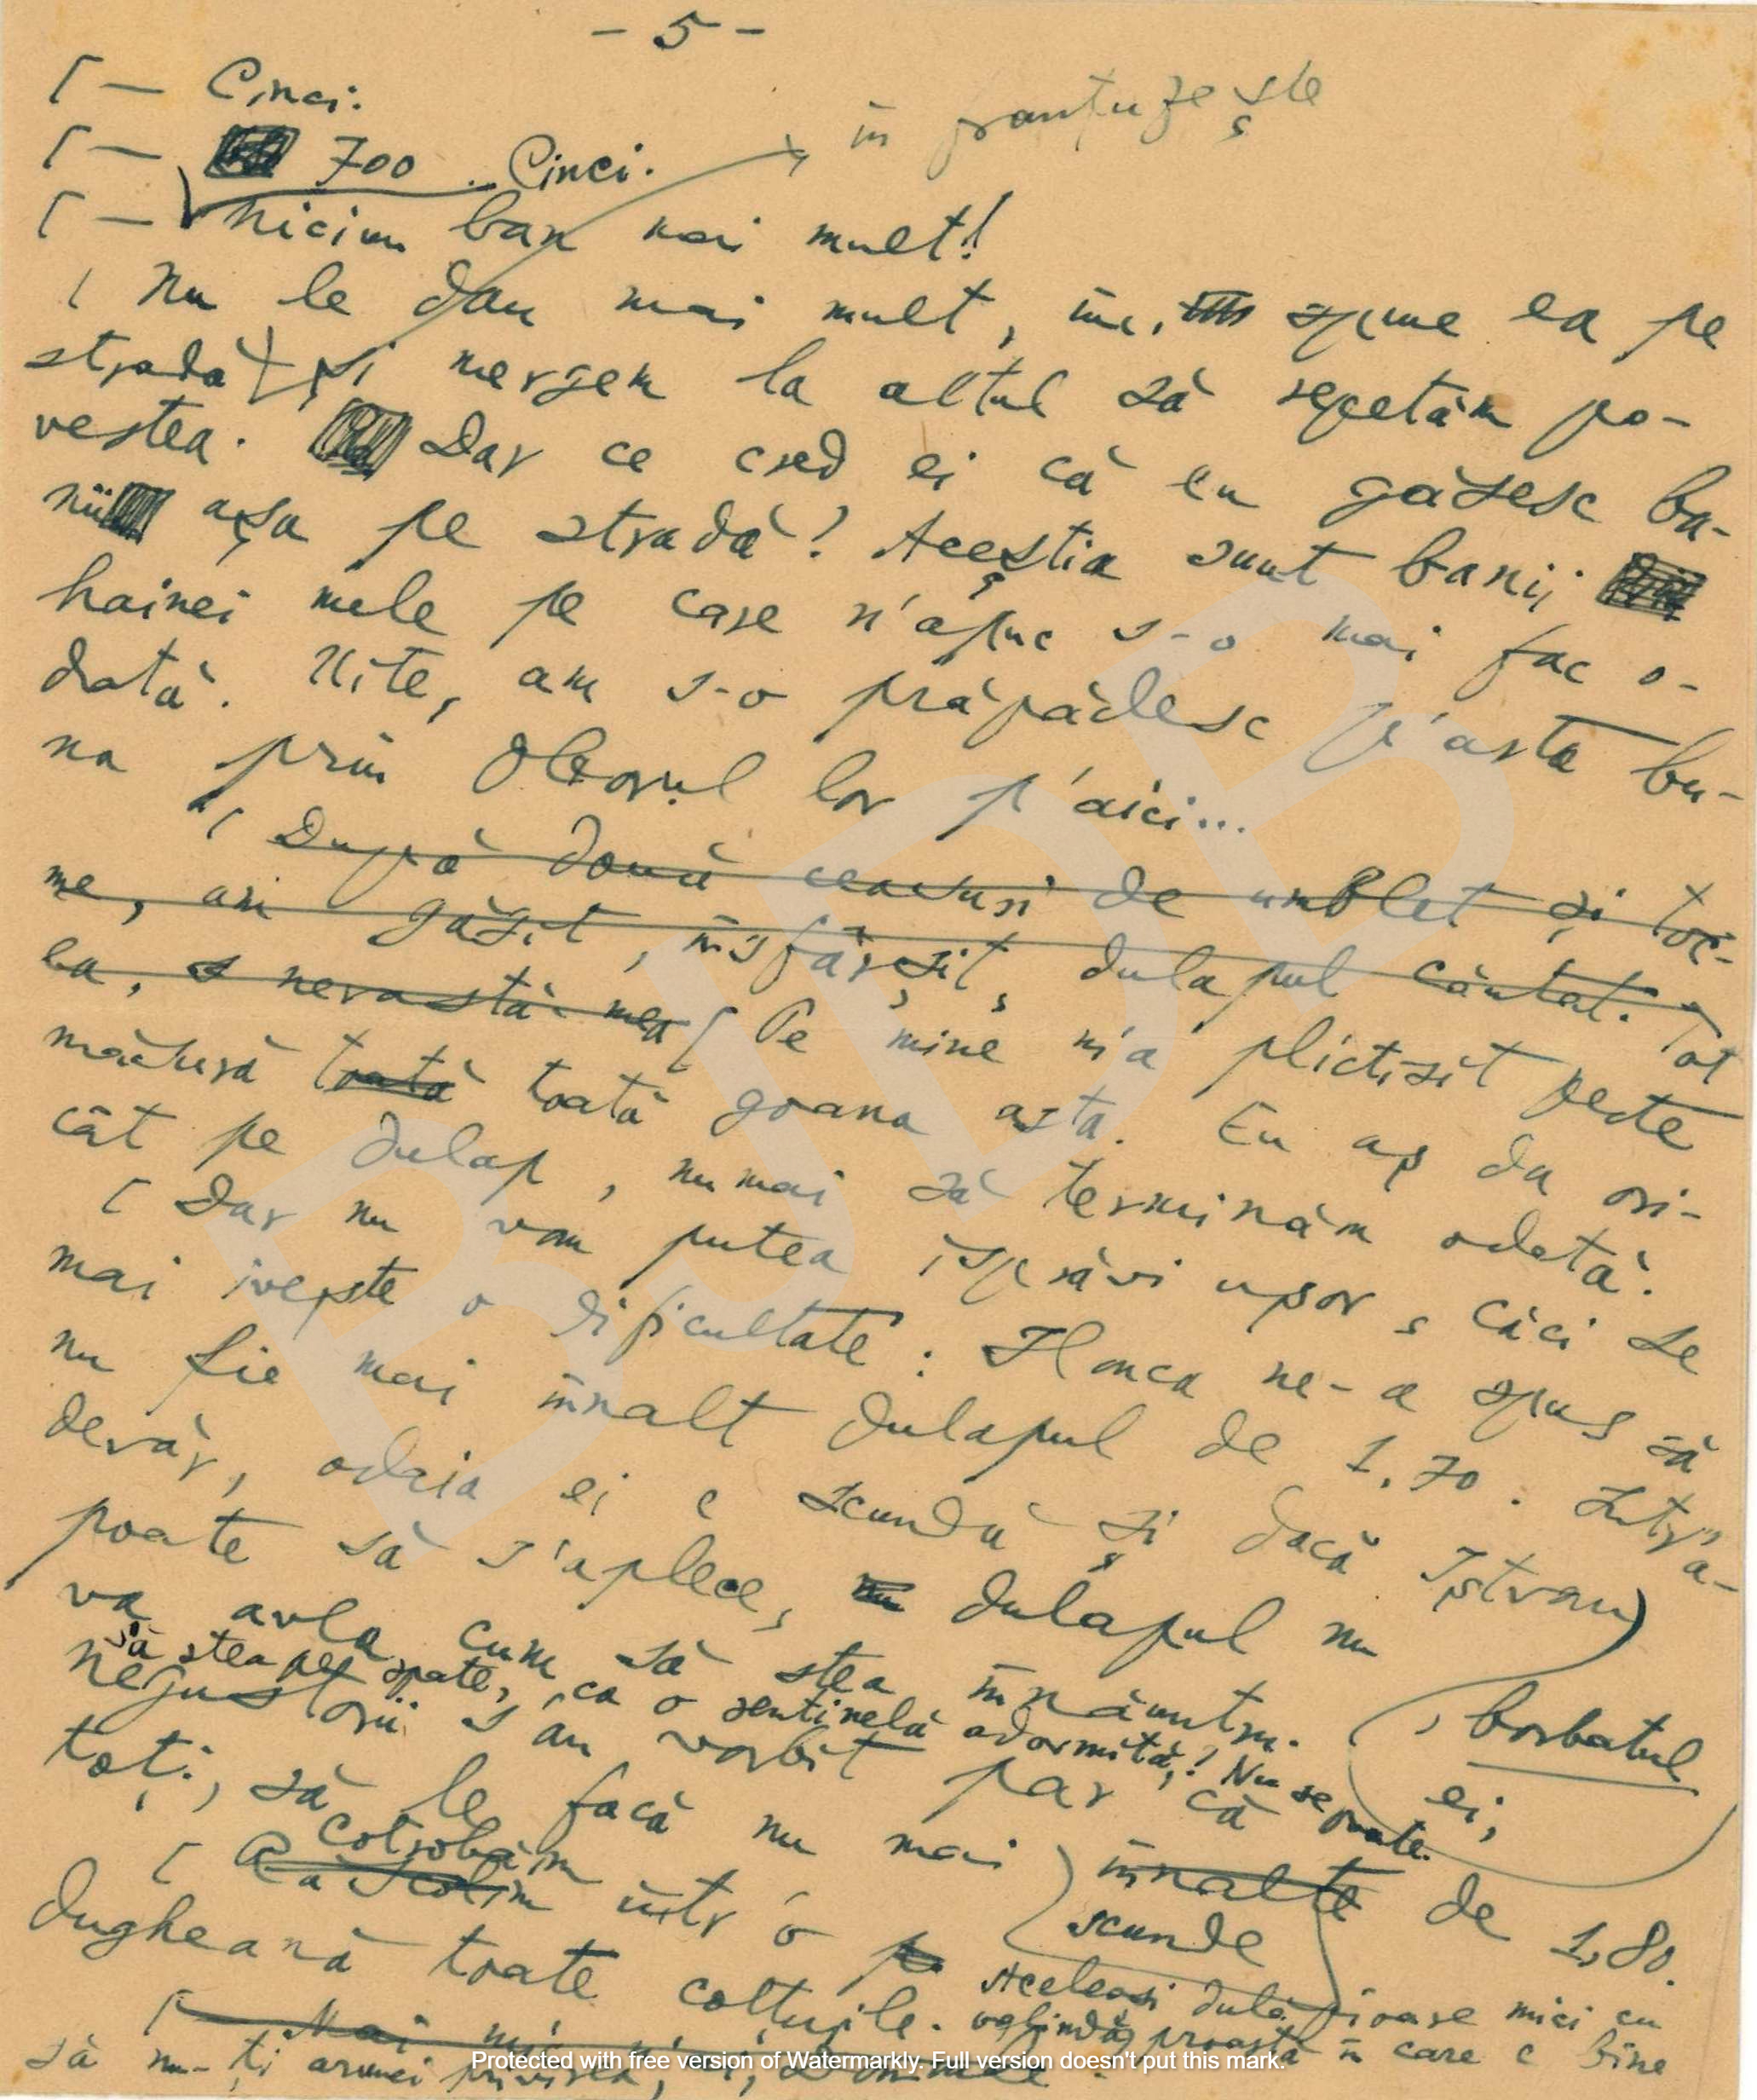 - 5 -
[ — Cinci.
[ — 700 . Cinci. în franțuzește
[ — niciun ban mai mult!
[ Nu le dau mai mult, îmi spune ea pe
stradă și mergem la altul să repetăm po-
vestea. Dar ce cred ei că eu găsesc ba-
nii așa pe stradă? Aceștia sunt banii
hainei mele pe care n'apuc s-o mai fac o-
dată. Uite, am s-o prăpădesc p'asta bu-
na prin oborul lor p'aici...
[ După două ceasuri de umblet și toc-
me, am găsit, însfârșit, dulapul căutat. Tot
la, nevastă-mea [ Pe mine m'a plictisit peste
măsură toată toată goana asta. Eu aș da ori-
cât pe dulap, numai să terminăm odată.
[ Dar nu vom putea isprăvi ușor, căci se
mai ivește o dificultate: Ilonca ne-a spus să
nu fie mai înnalt dulapul de 1.70. Într'a-
devăr, odaia ei e scundă și dacă Iștvan
, bărbatul ei,
poate să s'aplece, dulapul nu
va avla cum să stea înnăuntru.
să stea pe spate, ca o sentinelă adormită,! Nu se poate.
negustorii s'au vorbit par că
toți, să le facă nu mai înnalte de 1,80.
scunde
[ Cotrobăim într'o
dugheană toate colțurile. Aceleași dulăpioare mici cu
oglindă proastă în care e bine
să nu-ți arunci privirea,
Protected with free version of Watermarkly. Full version doesn't put this mark.